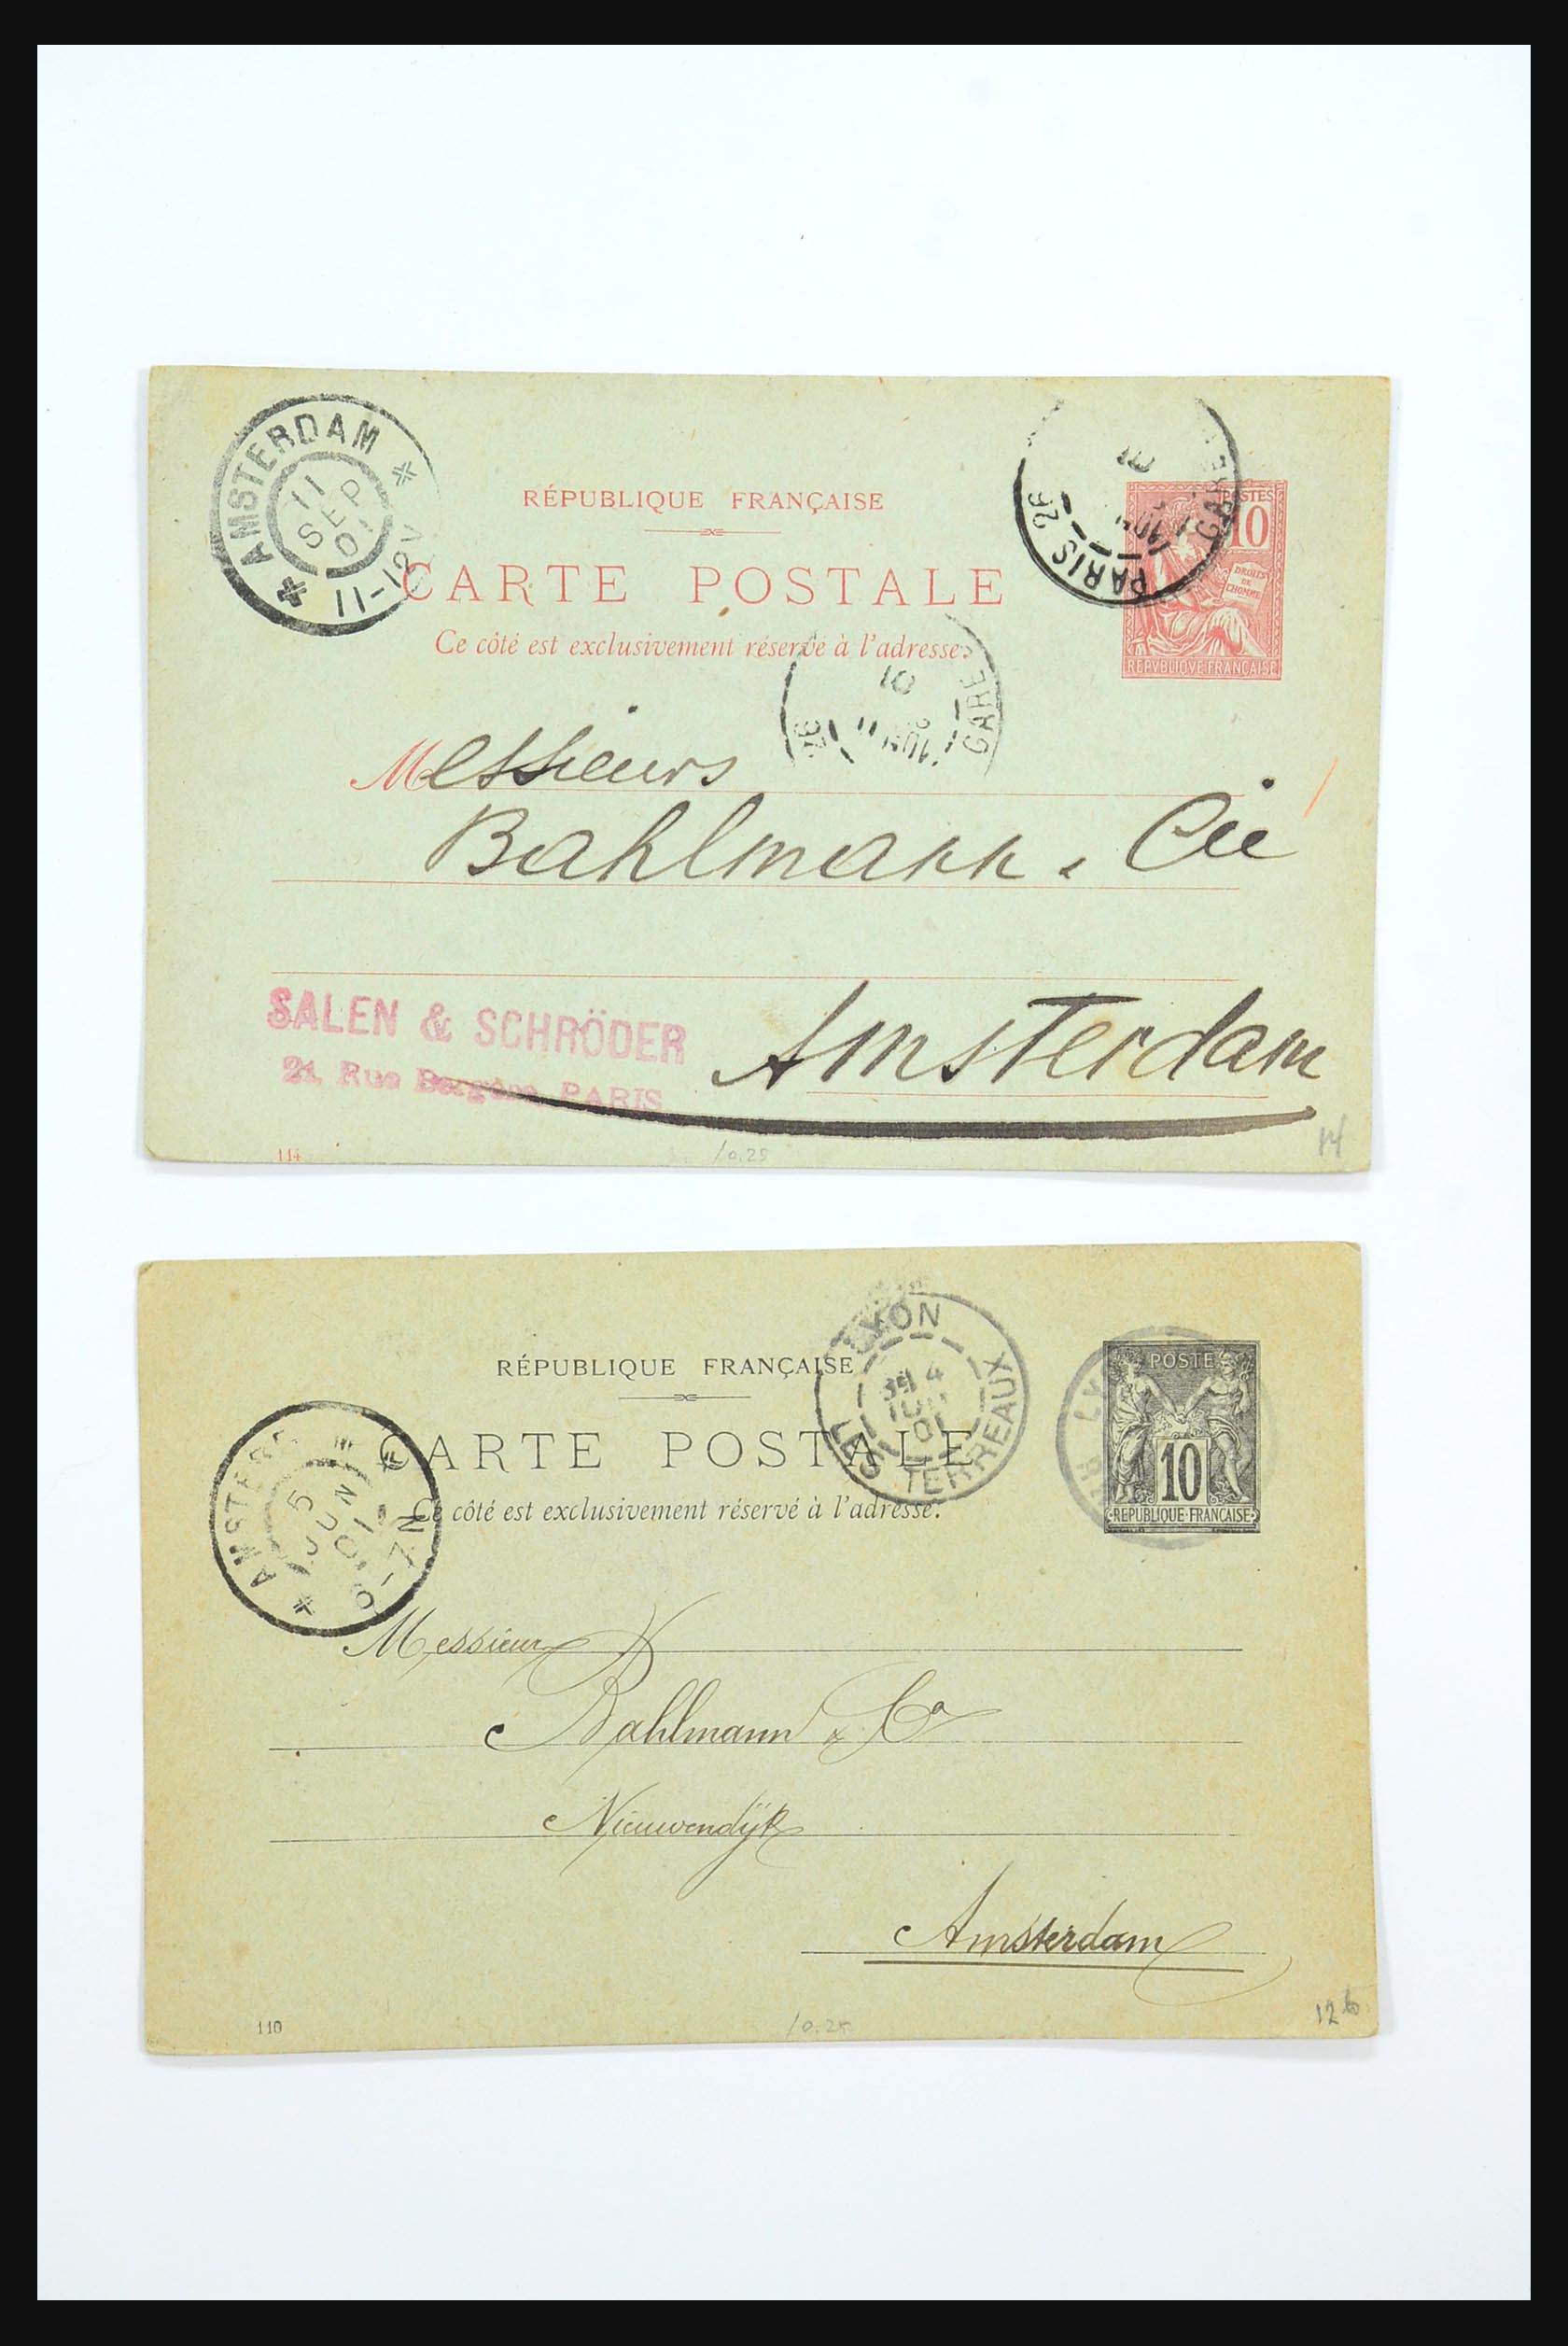 AMSTERDAM
11
SEP
01
11-12V
RÉPUBLIQUE FRANÇAISE
CARTE POSTALE
Ce côté est exclusivement réservé à l'adresse.
PARIS 26
GARE
POSTES
10
DROITS
DE
L'HOMME
REPVBLIQVE FRANÇAISE
26
GARE
01
Messieurs
Bahlmann & Cie
Amsterdam
SALEN & SCHRÖDER
21, Rue Bergère, PARIS
114
/0.25
14
RÉPUBLIQUE FRANÇAISE
CARTE POSTALE
Ce côté est exclusivement réservé à l'adresse.
LYON
LES TERREAUX
4
POSTE
10
REPUBLIQUE FRANÇAISE
5
JUN
01
6-7N
Messieurs
Bahlmann & Co
Nieuwendijk
Amsterdam
110
/0.25
12b